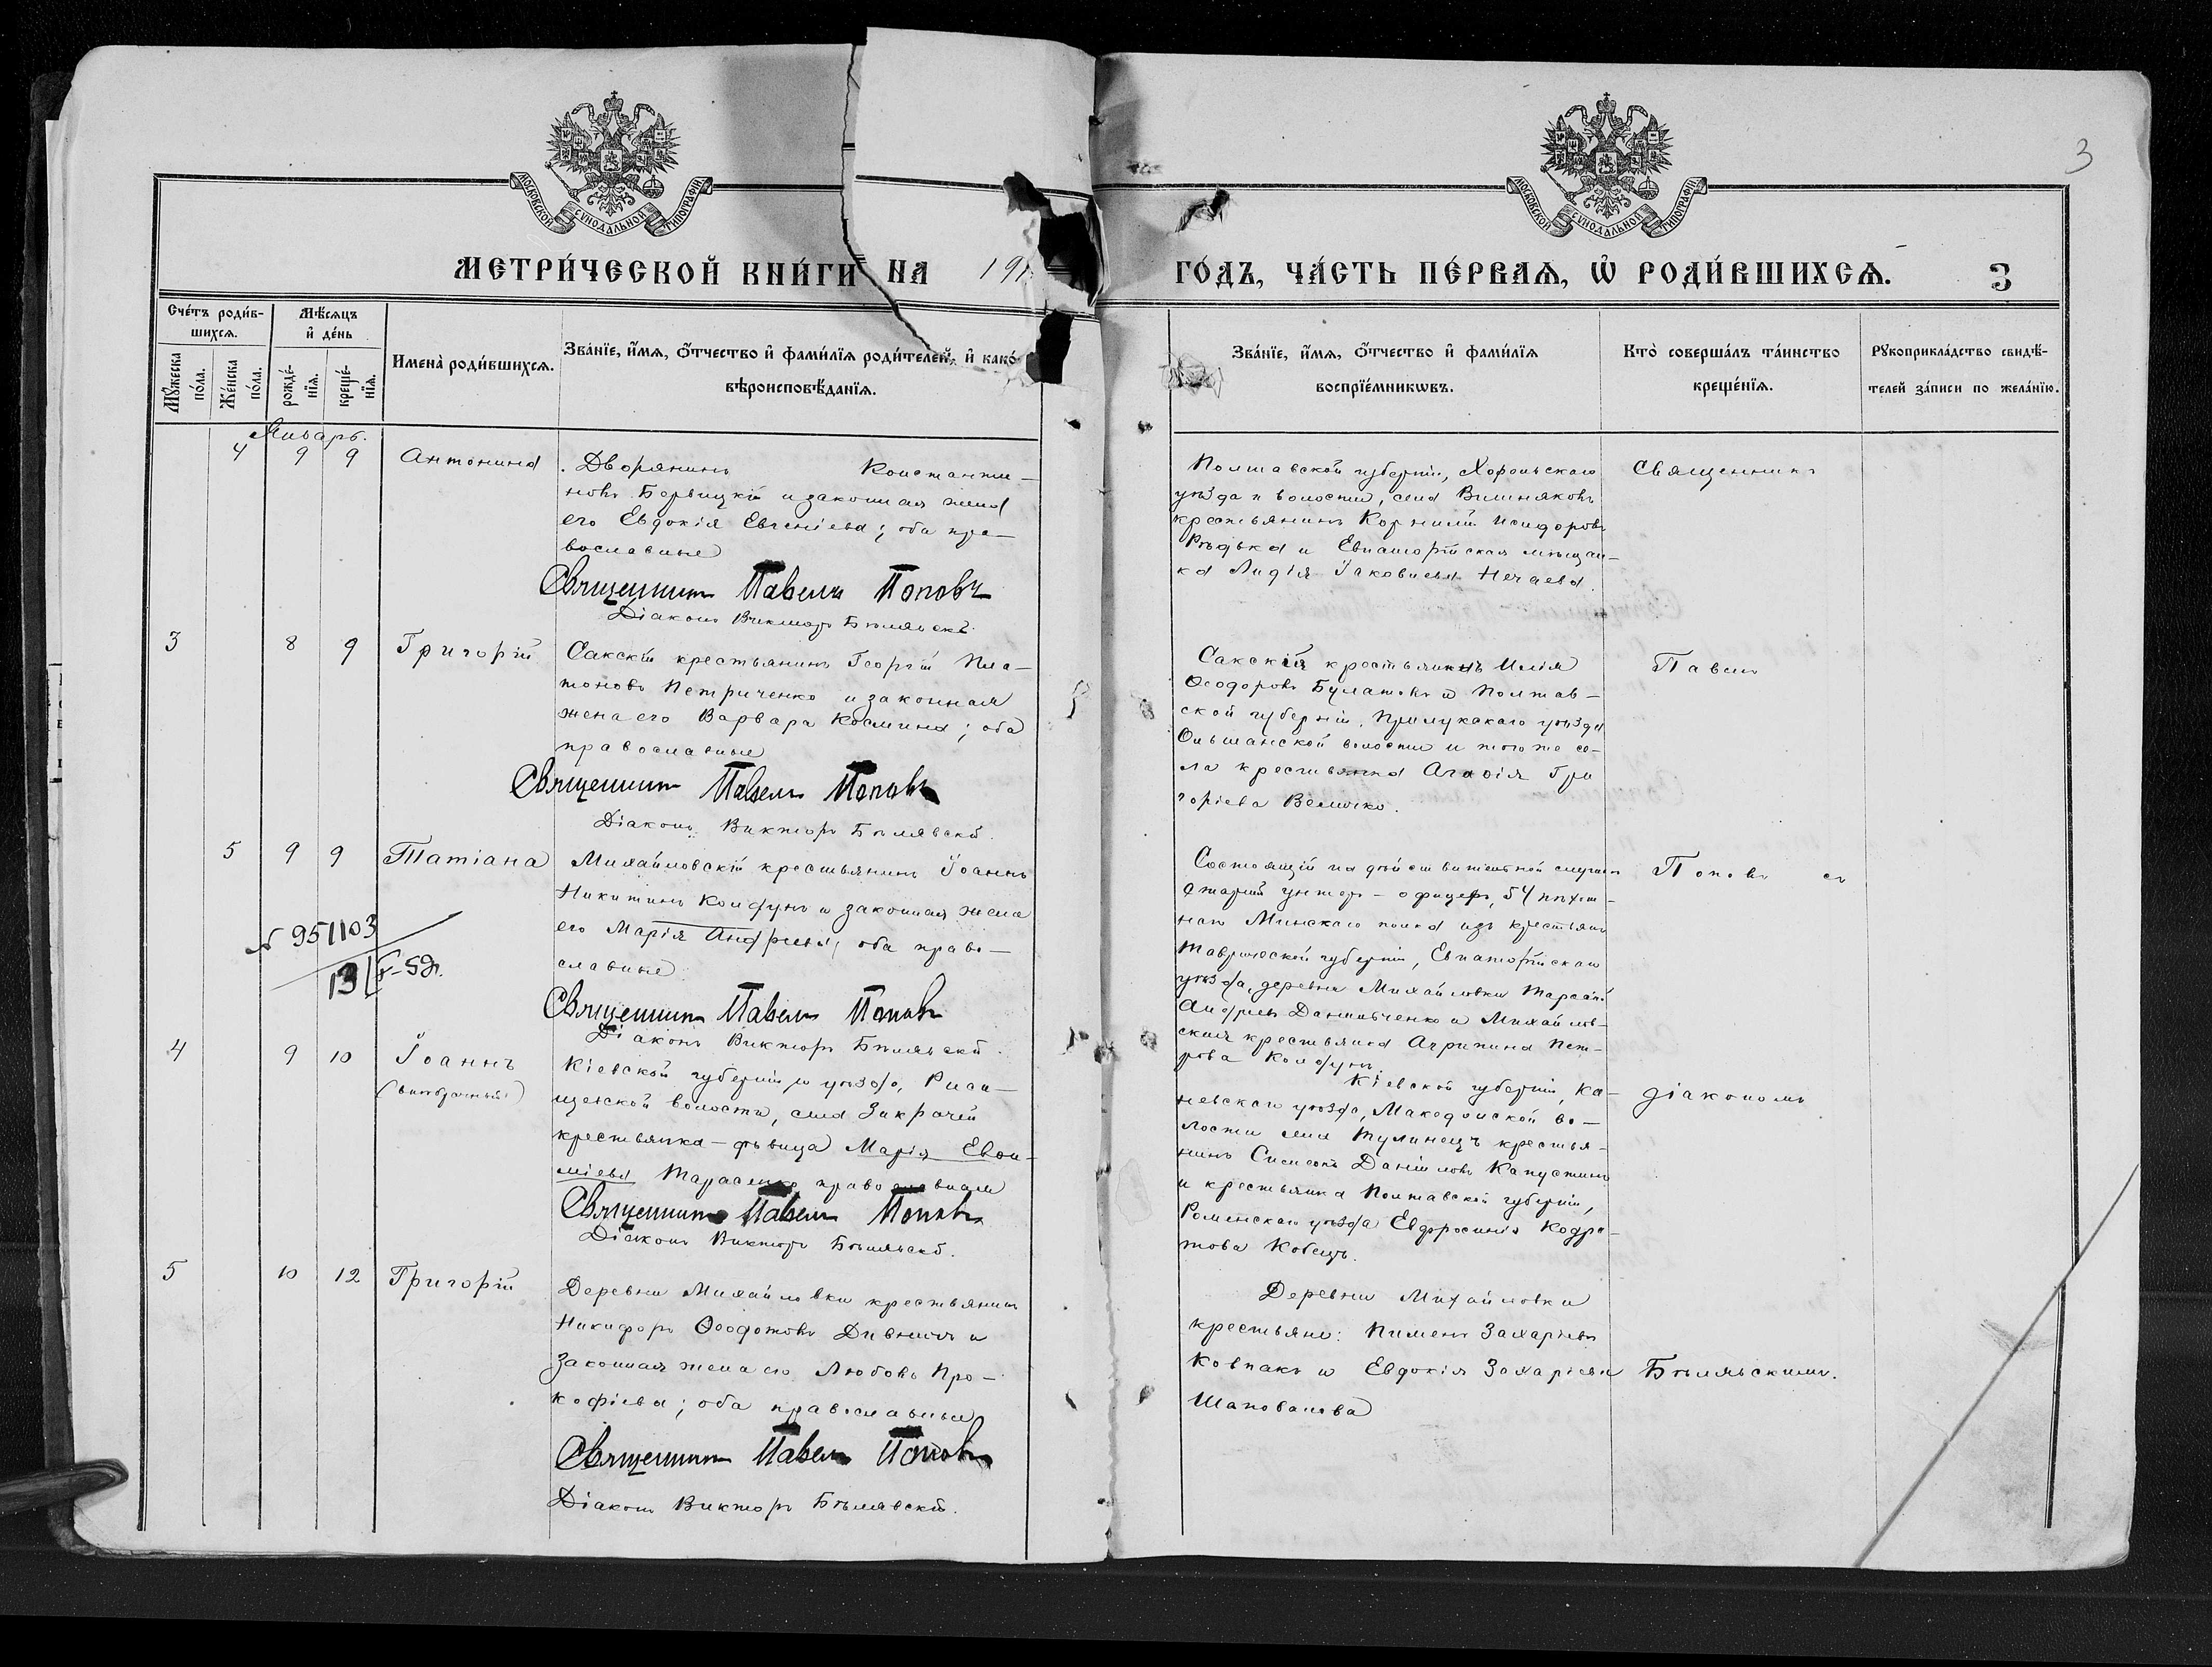 3
МОСКОВСКОЙ СѴНОДАЛЬНОЙ ТИПОГРАФІИ.
МОСКОВСКОЙ СѴНОДАЛЬНОЙ ТИПОГРАФІИ.
МЕТРИ́ЧЕСКОЙ КНИ́ГИ НА 191
ГО́ДЪ, ЧА́СТЬ ПЕ́РВАѦ, Ѽ РОДИ́ВШИХСѦ. 3
Сче́тъ роди́вшихсѧ.
Мꙋ́жеска по́ла.
Же́нска по́ла.
Мѣ́сѧцъ и҆ де́нь
рожде́нїѧ.
креще́нїѧ.
Имена̀ роди́вшихсѧ.
Зва́нїе, и҆́мѧ, ѻ҆́тчество и҆ фами́лїѧ роди́телей, и҆ како́
вѣроисповѣ́данїѧ.
Зва́нїе, и҆́мѧ, ѻ҆́тчество и҆ фами́лїѧ
воспрїе́мникѡвъ.
Кто̀ соверша́лъ та́инство
креще́нїѧ.
Рꙋкоприкла́дство свидѣ́-
телей за́писи по жела́нїю.
Январь.
4 9 9 Антонина
Дворянинъ Константи-
новъ Бервицкій и законная жена
его Евдокія Евгеніева; оба пра-
вославные
Священникъ Павелъ Поповъ
Діаконъ Викторъ Бѣлявскій
Полтавской губерніи, Хорольскаго
уѣзда и волости, села Вишняковъ
крестьянинъ Корнилій Исидоровъ
Рѣдька и Евпаторійская мѣщан-
ка Лидія Іаковлева Нечаева
Священникъ
3 8 9 Григорій
Сакскій крестьянинъ Георгій Пла-
тоновъ Петриченко и законная
жена его Варвара Космина; оба
православные
Священникъ Павелъ Поповъ
Діаконъ Викторъ Бѣлявскій.
Сакскій крестьянинъ Илія
Ѳеодоровъ Булатовъ и Полтав-
ской губерніи, Прилукскаго уѣзда
Ольшанской волости и того же се-
ла крестьянка Агаѳія Гри
горіева Величко.
Павелъ
5 9 9 Татіана
Михайловскій крестьянинъ Іоаннъ
Никитинъ Колфунъ и законная жена
его Марія Андреева; оба право-
славные
Священникъ Павелъ Поповъ
Діаконъ Викторъ Бѣлявскій.
№ 951103
13
Состоящій на дѣйствительной службѣ
старшій унтеръ-офицеръ, 54 пѣхот-
наго Минскаго полка изъ крестьянъ
Таврической губерніи, Евпаторійскаго
уѣзда, деревни Михайловки Тарасій
Андреевъ Данильченко и Михайлов-
ская крестьянка Агрипина Пет-
рова Колфунъ.
Поповъ съ
4 9 10 Іоаннъ
(внѣбрачный)
Кіевской губерніи и уѣзда, Ржи-
щевской волости, села
крестьянка-дѣвица Марія Евѳи-
міева Тарасенко православная
Священникъ Павелъ Поповъ
Діаконъ Викторъ Бѣлявскій.
Кіевской губерніи, Ка-
невскаго уѣзда, Македонской во-
лости села Тулинецъ крестья-
нинъ Сисой Даніиловъ Капустинъ
и крестьянка Полтавской губерніи,
Роменскаго уѣзда Евфросинія Кодра-
това Кобецъ.
діакономъ
5 10 12 Григорій
Деревни Михайловки крестьянинъ
Никифоръ Ѳеодотовъ Дивничъ и
законная жена его Любовь Про-
кофіева; оба православные
Священникъ Павелъ Поповъ
Діаконъ Викторъ Бѣлявскій.
Деревни Михайловки
крестьяне: Пименъ Захаріевъ
Ковпакъ и Евдокія Захаріева
Шаповалова
Бѣлявскимъ.